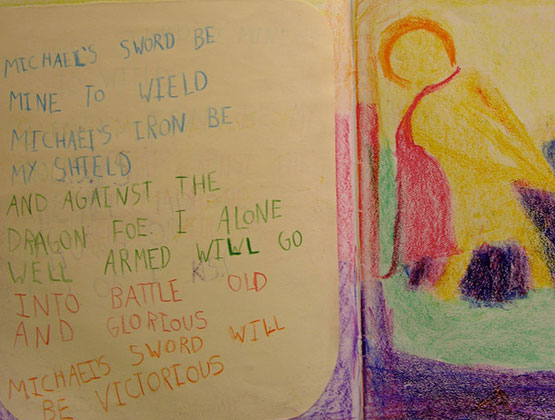 MICHAEL'S SWORD BE
MINE TO WIELD
MICHAEL'S IRON BE
MY SHIELD
AND AGAINST THE
DRAGON FOE I ALONE
WELL ARMED WILL GO
INTO BATTLE OLD
AND GLORIOUS
MICHAEL'S SWORD WILL
BE VICTORIOUS